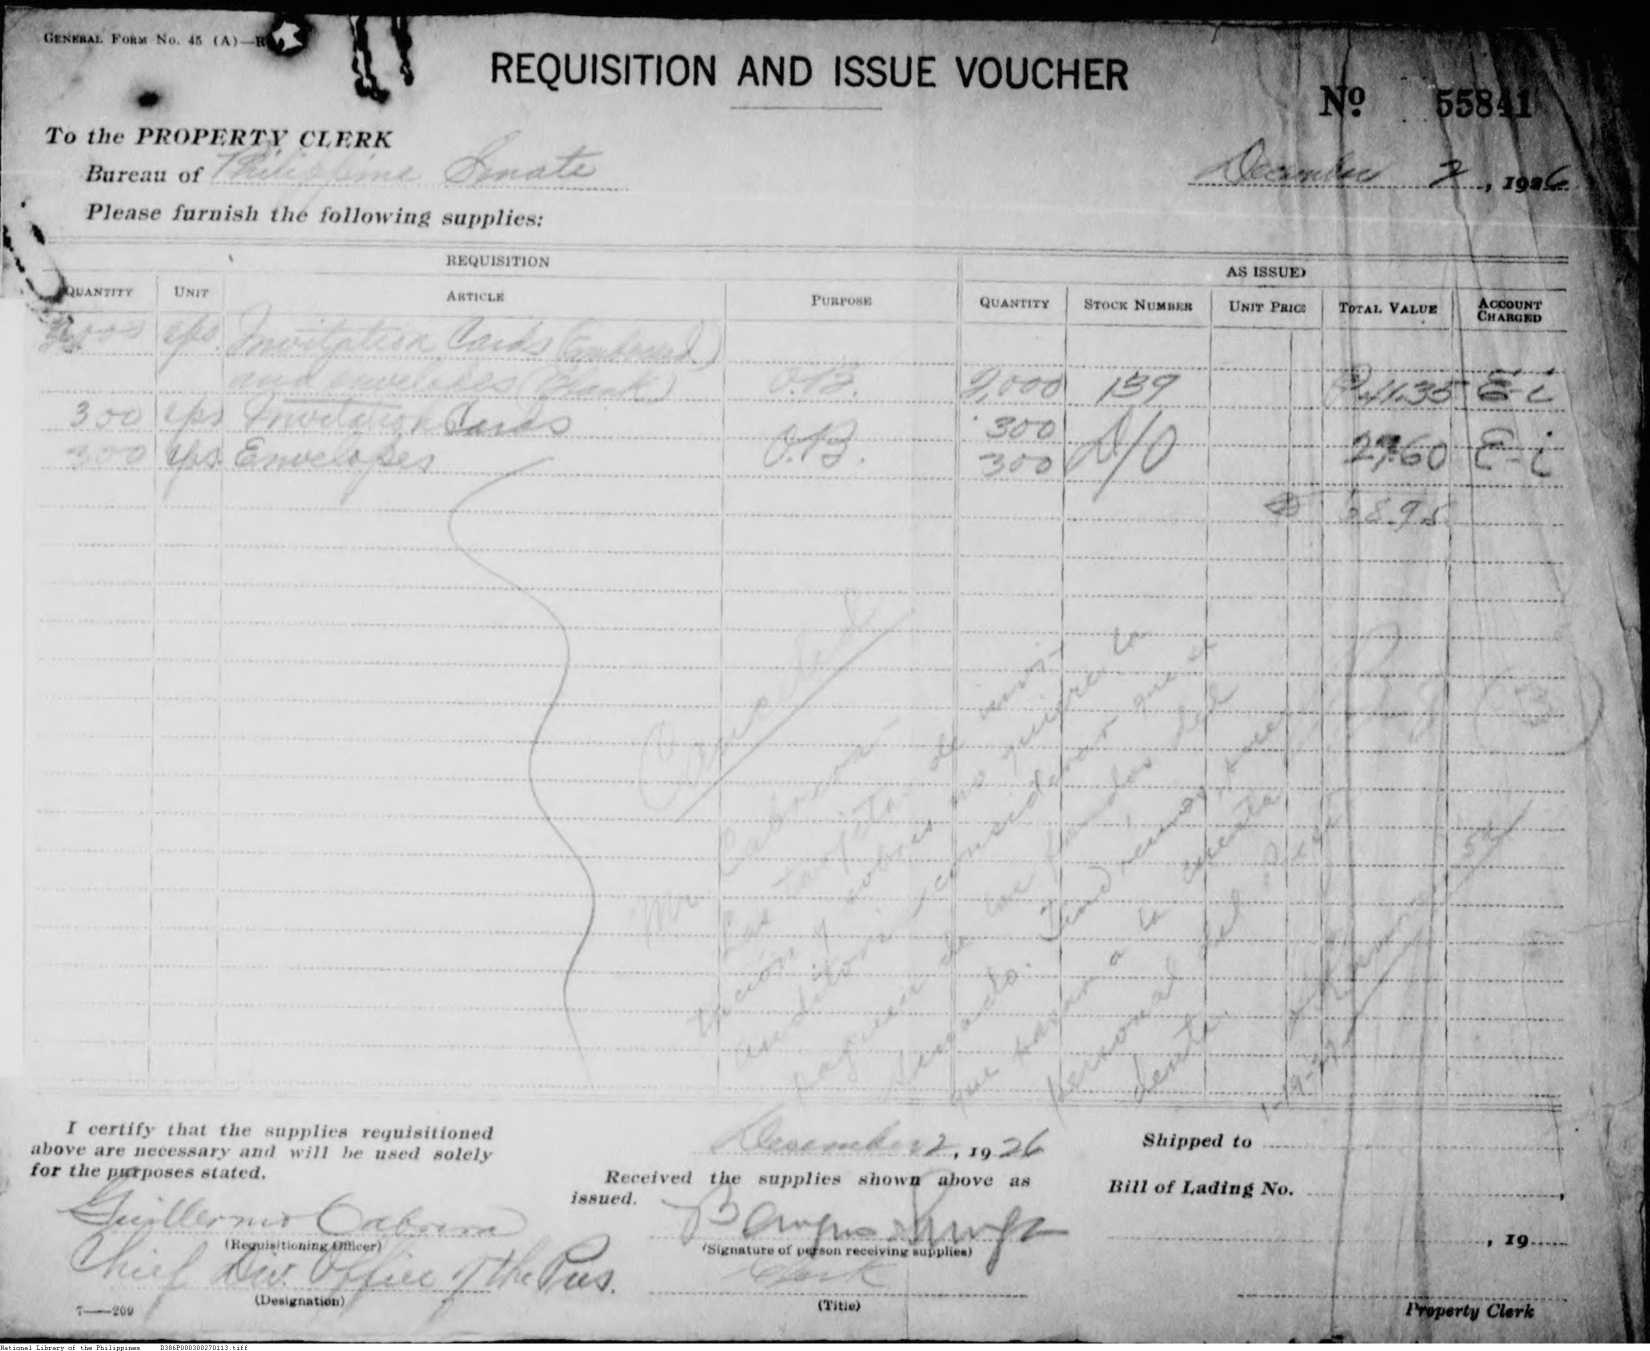 GENERAL FORM No. 45 (A)—
REQUISITION AND ISSUE VOUCHER
No. 55841
To the PROPERTY CLERK
Bureau of Philippine Senate
December 2, 1926
Please furnish the following supplies:
REQUISITION
AS ISSUED
QUANTITY UNIT ARTICLE PURPOSE QUANTITY STOCK NUMBER UNIT PRICE TOTAL VALUE ACCOUNT CHARGED
2000 cps Invitation Cards (Embossed)
and envelopes (blank) O.B. 2,000 139 41.35 E-i
300 cps Invitation Cards 300
300 cps Envelopes O.B. 300 D/O 27.60 E-i
₱ 68.95
Cancelled
Mr. Cabrera-
Las tarjetas de invi-
tación y sobres no quiere la
auditoria considerar que se
paguen de los fondos del
Senado.
que hagan a la cuenta
personal del
dente.
1-19-27
I certify that the supplies requisitioned
above are necessary and will be used solely
for the purposes stated.
Guillermo Cabrera
(Requisitioning Officer)
Chief Div. Office of the Pres.
(Designation)
7—209
December 2, 1926
Received the supplies shown above as
issued.
(Signature of person receiving supplies)
Clerk
(Title)
Shipped to
Bill of Lading No.
, 19
Property Clerk
National Library of the Philippines D386P000300270113.tiff